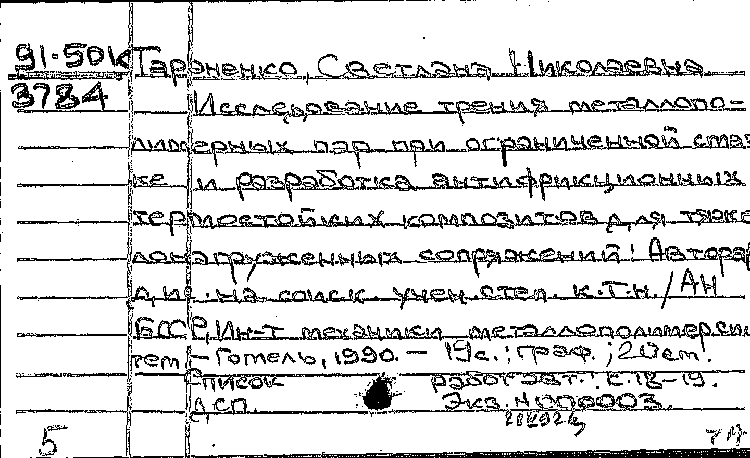 91-50к Тараненко, Светлана Николаевна
3784 Исследование трения металлопо-
лимерных пар при ограниченной смаз
ке и разработка антифрикционных
термостойких композитов для тяже
лонагруженных сопряжений: Автореф
дис. на соиск. учен. степ. к.т.н. / АН
БССР, Ин-т механики металлополимер. сис
тем. – Гомель, 1990. – 19с.; граф.; 20см.
Список работ авт.: с.18-19.
ДСП. Экз. N 000003.
5